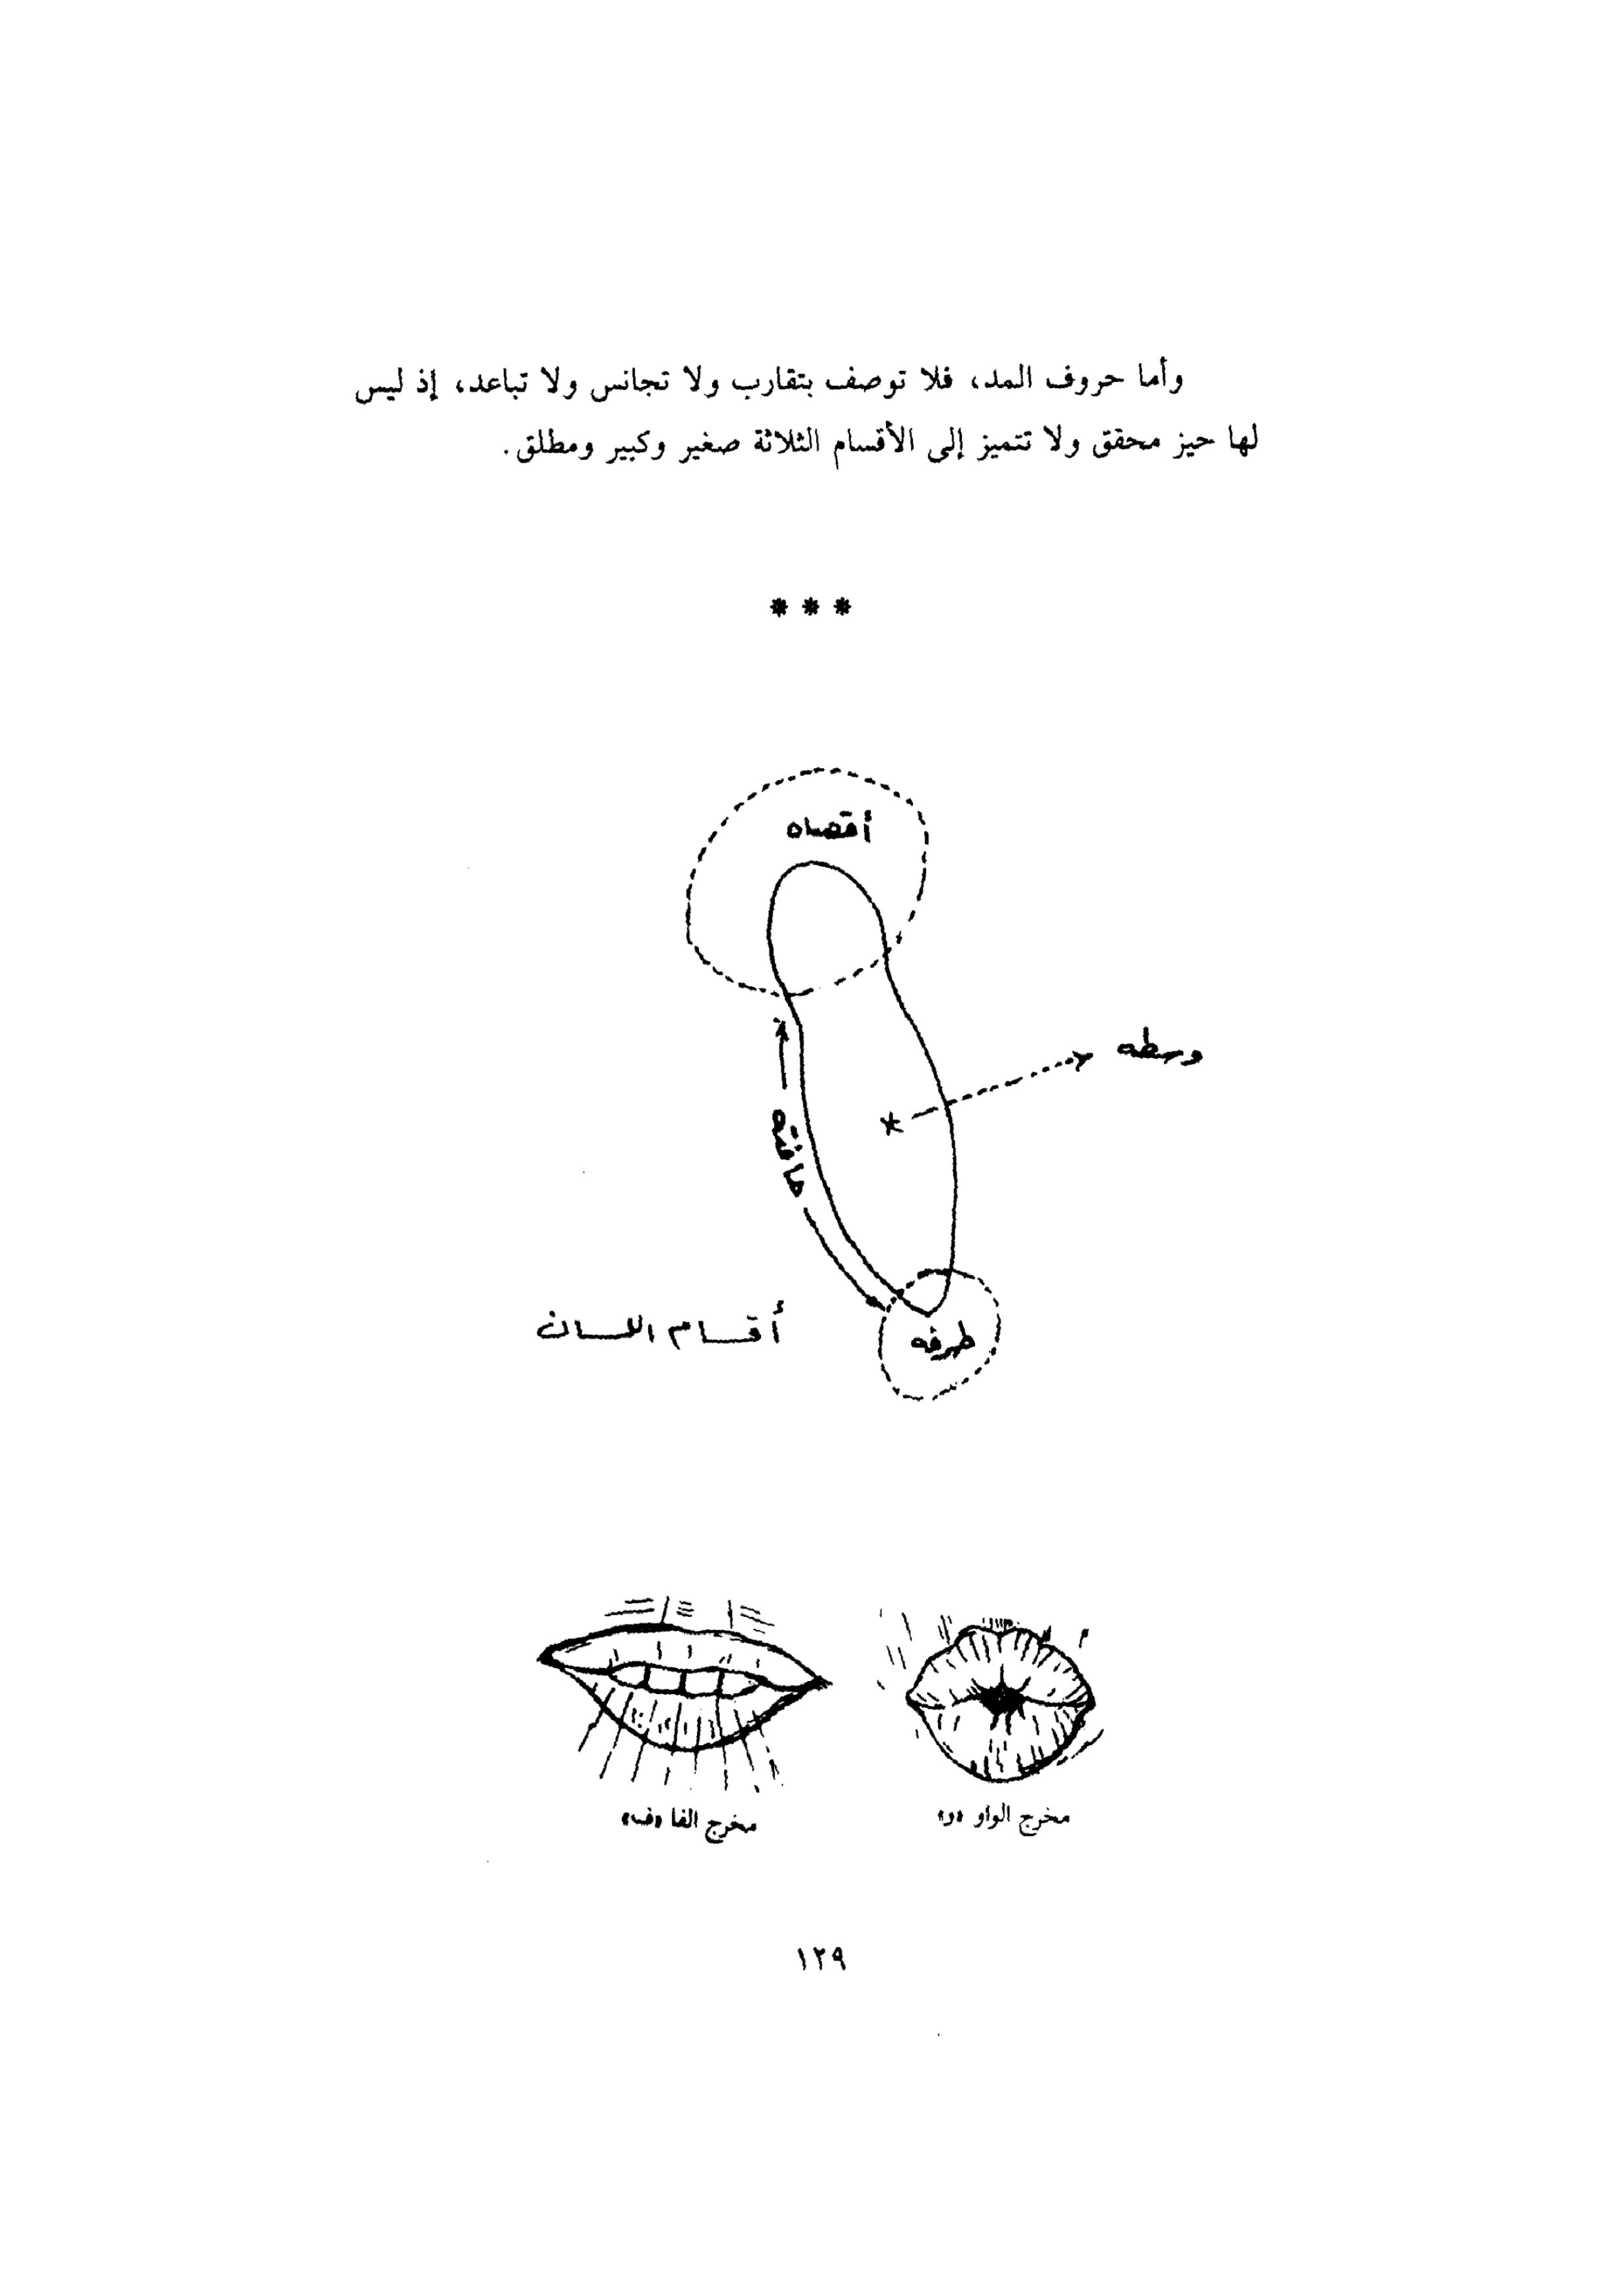 وأما حروف المد، فلا توصف بتقارب ولا تجانس ولا تباعد، إذ ليس
لها حيز محقق ولا تتميز إلى الأقسام الثلاثة صغير وكبير ومطلق.
***
أقصاه
وسطه
حافته
طرفه
أقسام اللسان
مخرج الواو «و»
مخرج الفا «ف»
١٢٩